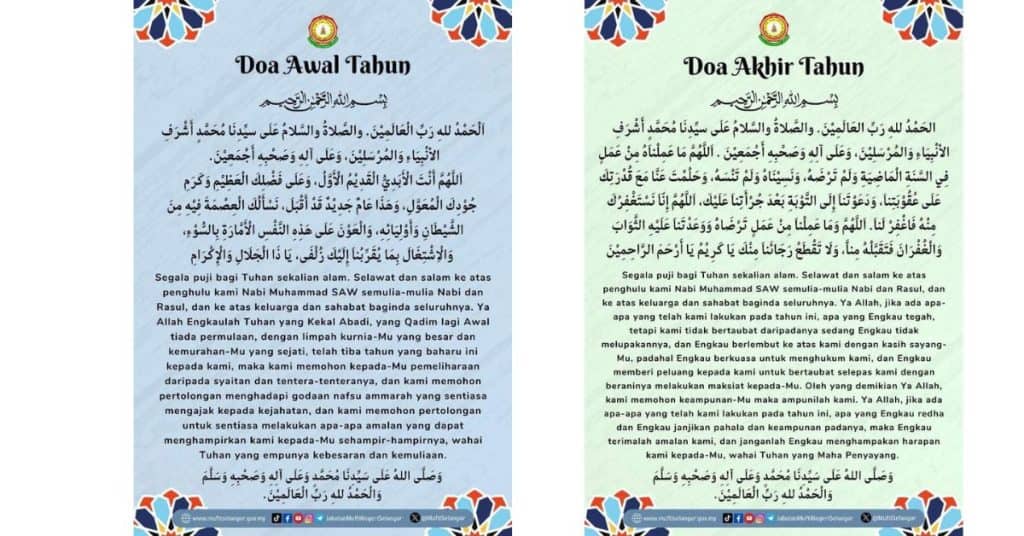 Doa Awal Tahun
بِسْمِ اللهِ الرَّحْمٰنِ الرَّحِيْمِ
اَلْحَمْدُ للهِ رَبِّ الْعَالَمِيْنَ. والصَّلاةُ والسَّلامُ عَلَى سَيِّدِنَا مُحَمَّدٍ أَشْرَفِ
الأَنْبِيَاءِ وَالمُرْسَلِيْنَ، وَعَلَى آلِهِ وَصَحْبِهِ أَجْمَعِيْنَ.
اللَّهُمَّ أَنْتَ الأَبَدِيُّ الْقَدِيْمُ الأَوَّلُ، وَعَلَى فَضْلِكَ الْعَظِيْمِ وَكَرَمِ
جُوْدِكَ الْمُعَوَّلِ، وَهَذَا عَامٌ جَدِيْدٌ قَدْ أَقْبَلَ، نَسْأَلُكَ الْعِصْمَةَ فِيْهِ مِنَ
الشَّيْطَانِ وَأَوْلِيَائِهِ، وَالْعَوْنَ عَلَى هَذِهِ النَّفْسِ الأَمَّارَةِ بِالسُّوْءِ،
وَالِاشْتِغَالَ بِمَا يُقَرِّبُنَا إِلَيْكَ زُلْفَى، يَا ذَا الْجَلَالِ وَالْإِكْرَامِ
Segala puji bagi Tuhan sekalian alam. Selawat dan salam ke atas
penghulu kami Nabi Muhammad SAW semulia-mulia Nabi dan
Rasul, dan ke atas keluarga dan sahabat baginda seluruhnya. Ya
Allah Engkaulah Tuhan yang Kekal Abadi, yang Qadim lagi Awal
tiada permulaan, dengan limpah kurnia-Mu yang besar dan
kemurahan-Mu yang sejati, telah tiba tahun yang baharu ini
kepada kami, maka kami memohon kepada-Mu pemeliharaan
daripada syaitan dan tentera-tenteranya, dan kami memohon
pertolongan menghadapi godaan nafsu ammarah yang sentiasa
mengajak kepada kejahatan, dan kami memohon pertolongan
untuk sentiasa melakukan apa-apa amalan yang dapat
menghampirkan kami kepada-Mu sehampir-hampirnya, wahai
Tuhan yang empunya kebesaran dan kemuliaan.
وَصَلَّى اللهُ عَلَى سَيِّدِنَا مُحَمَّد وَعَلَى آلِهِ وَصَحْبِهِ وَسَلَّمَ
وَالْحَمْدُ للهِ رَبِّ الْعَالَمِيْنَ.
www.muftiselangor.gov.my JabatanMuftiNegeriSelangor @MuftiSelangor
Doa Akhir Tahun
بِسْمِ اللهِ الرَّحْمٰنِ الرَّحِيْمِ
الحَمْدُ للهِ رَبِّ الْعَالَمِيْنَ. والصَّلاةُ والسَّلامُ عَلَى سيِّدِنَا مُحَمَّدٍ أَشْرَفِ
الأَنْبِيَاءِ وَالمُرْسَلِيْنَ، وَعَلَى آلِهِ وَصَحْبِهِ أَجْمَعِيْنَ . اللَّهُمَّ مَا عَمِلْنَاهُ مِنْ عَمَلٍ
فِي السَّنَةِ الْمَاضِيَةِ وَلَمْ تَرْضَهُ، وَنَسِيْنَاهُ وَلَمْ تَنْسَهُ، وَحَلُمْتَ عَنَّا مَعَ قُدْرَتِكَ
عَلَى عُقُوْبَتِنَا، وَدَعَوْتَنَا إِلَى التَّوْبَةِ بَعْدَ جُرْأَتِنَا عَلَيْكَ، اللَّهُمَّ إِنَّا نَسْتَغْفِرُكَ
مِنْهُ فَاغْفِرْ لَنَا. اللَّهُمَّ وَمَا عَمِلْنَا مِنْ عَمَلٍ تَرْضَاهُ وَوَعَدْتَنَا عَلَيْهِ الثَّوَابَ
وَالْغُفْرَانَ فَتَقَبَّلْهُ مِنَّا، وَلَا تَقْطَعْ رَجَائَنَا مِنْكَ يَا كَرِيْمُ يَا أَرْحَمَ الرَّاحِمِيْنَ
Segala puji bagi Tuhan sekalian alam. Selawat dan salam ke atas
penghulu kami Nabi Muhammad SAW semulia-mulia Nabi dan Rasul, dan
ke atas keluarga dan sahabat baginda seluruhnya. Ya Allah, jika ada apa-
apa yang telah kami lakukan pada tahun ini, apa yang Engkau tegah,
tetapi kami tidak bertaubat daripadanya sedang Engkau tidak
melupakannya, dan Engkau berlembut ke atas kami dengan kasih sayang-
Mu, padahal Engkau berkuasa untuk menghukum kami, dan Engkau
memberi peluang kepada kami untuk bertaubat selepas kami dengan
beraninya melakukan maksiat kepada-Mu. Oleh yang demikian Ya Allah,
kami memohon keampunan-Mu maka ampunilah kami. Ya Allah, jika ada
apa-apa yang telah kami lakukan pada tahun ini, apa yang Engkau redha
dan Engkau janjikan pahala dan keampunan padanya, maka Engkau
terimalah amalan kami, dan janganlah Engkau menghampakan harapan
kami kepada-Mu, wahai Tuhan yang Maha Penyayang.
وَصَلَّى اللهُ عَلَى سَيِّدِنَا مُحَمَّد وَعَلَى آلِهِ وَصَحْبِهِ وَسَلَّمَ
وَالْحَمْدُ للهِ رَبِّ الْعَالَمِيْنَ.
www.muftiselangor.gov.my JabatanMuftiNegeriSelangor @MuftiSelangor